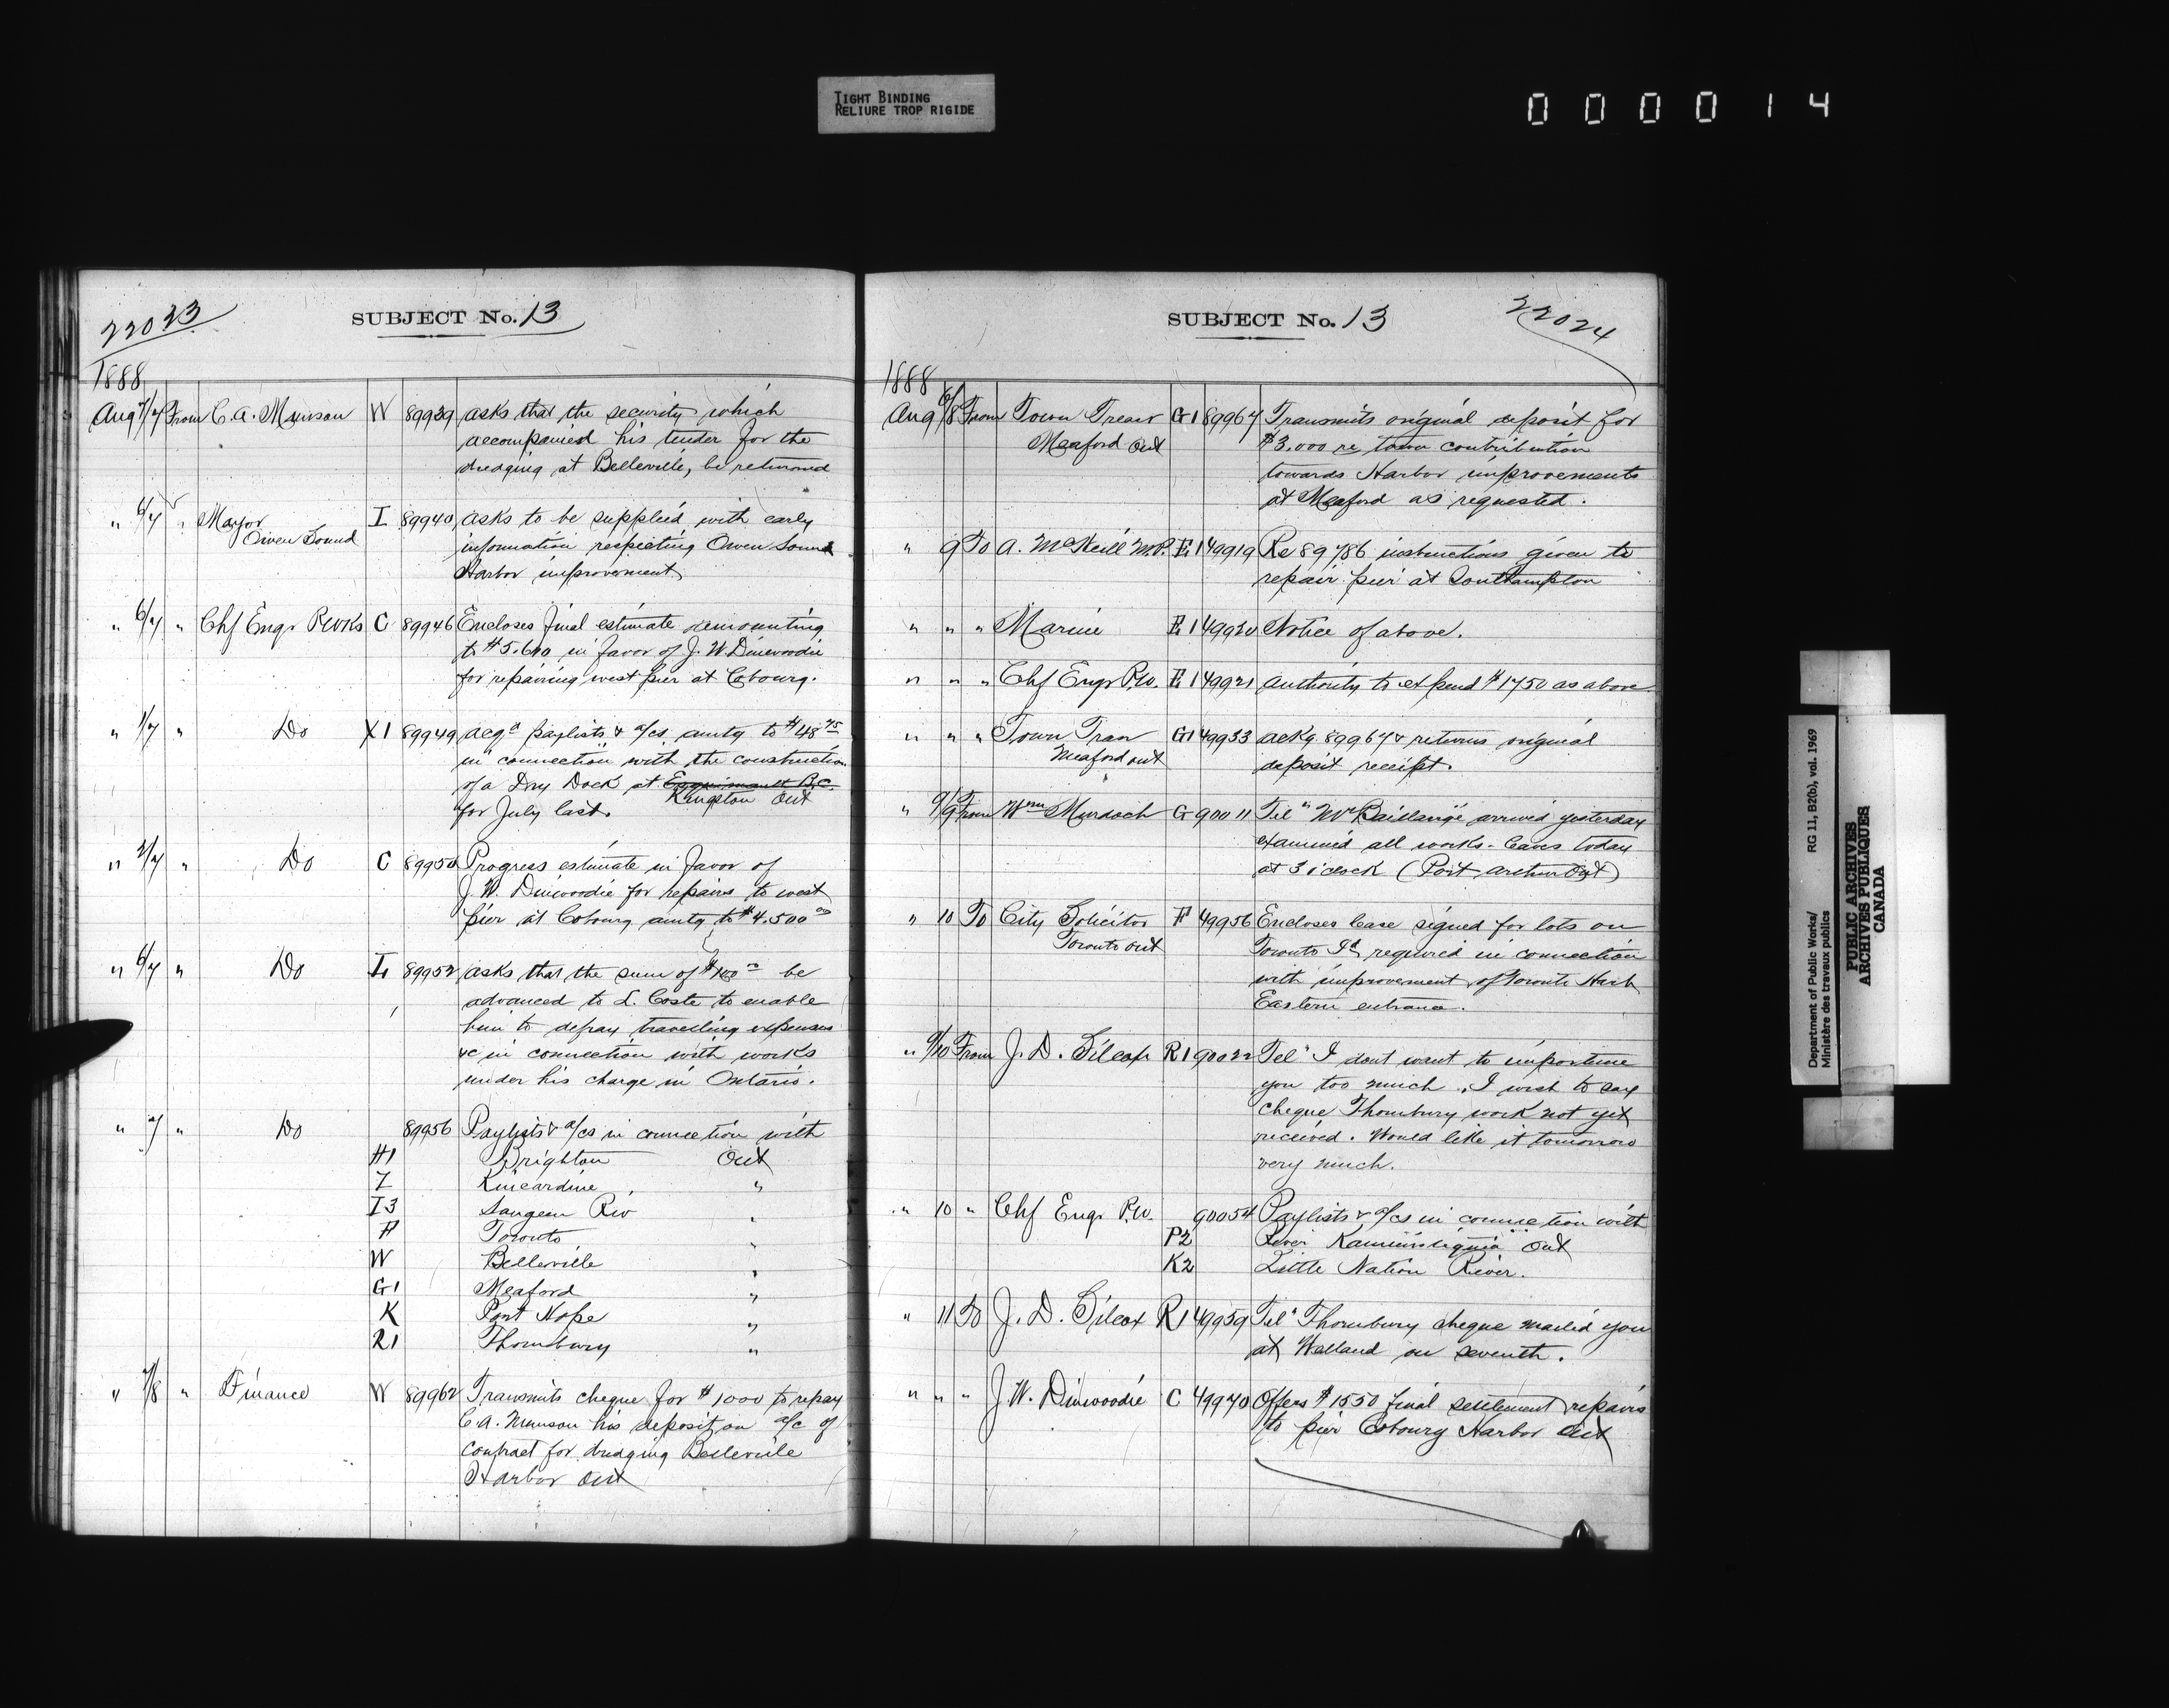 TIGHT BINDING
RELIURE TROP RIGIDE
0 0 0 0 1 4
22023
SUBJECT No. 13
1888
Aug 7/7 From C. A. Munson W 89939 asks that the security which
accompanied his tender for the
dredging at Belleville, be returned
" 6/7 " Mayor I 89940 asks to be supplied with early
Owen Sound
information respecting Owen Sound
Harbor improvement
" 6/7 " Chf Engr P Wks C 89946 Encloses final estimate amounting
to $5.610 in favor of J. W. Dinwoodie
for repairing west pier at Cobourg.
" 1/7 " Do X1 89949 paylists & a/cs amtg to $48 75
in connection with the construction
of a Dry Dock at Esquimault B.C.
Kingston Ont
for July last.
" 2/7 " Do C 89950 Progress estimate in favor of
J. W. Dinwoodie for repairs to west
pier at Cobourg amtg to $4.500 00
" 6/7 " Do 89952 asks that the sum of $100 00 be
advanced to L. Coste to enable
him to defray travelling expenses
&c in connection with works
under his charge in Ontario.
" 7 " Do 89956 Paylists & a/cs in connection with
H1 Brighton Ont
Kincardine "
I3 Saugeen Riv "
Toronto "
W Belleville "
G1 Meaford "
K Port Hope "
R1 Thornbury "
" 7/8 " Finance W 89962 Transmits cheque for $1000 to repay
C. A. Munson his deposit on a/c of
contract for dredging Belleville
Harbor Ont
SUBJECT No. 13
22024
1888
Aug 6/8 From Town Treasr G1 89967 Transmits original deposit for
Meaford Ont
$3.000 re town contribution
towards Harbor improvements
at Meaford as requested.
" 9 To A. McNeill M.P. E1 49919 Re 89786 instructions given to
repair pier at Southampton
" " " Marine E1 49920 Notice of above.
" " " Chf Engr P.W. E1 49921 Authority to expend $1750 as above
" " " Town Treas G1 49933 ackg. 89967 & returns original
Meaford Ont
deposit receipt.
" 9/9 From Wm Murdoch G 90011 Tel " Mr Baillairgé arrived yesterday
examined all works. leaves today
at 3 o'clock (Port Arthur Ont)
" 10 To City Solicitor F 49956 Encloses lease signed for lots on
Toronto Ont
Toronto Id required in connection
with improvement of Toronto Harb
Eastern entrance.
" 9/10 From J. D. Silcox R1 90022 Tel " I dont want to importune
you too much. I wish to say
cheque Thornbury work not yet
received. Would like it tomorrow
very much.
" 10 " Chf Engr P.W. 90054 Paylists & a/cs in connection with
P2 River Kaministiquia Ont
K2 Little Nation River.
" 11 To J. D. Silcox R1 49959 Tel " Thornbury cheque mailed you
at Welland on seventh.
" " " J. W. Dinwoodie C 49970 Offers $1550 final settlement repairs
to pier Cobourg Harbor Ont
Department of Public Works/ RG 11, B2(b), vol. 1969
Ministère des travaux publics
PUBLIC ARCHIVES
ARCHIVES PUBLIQUES
CANADA